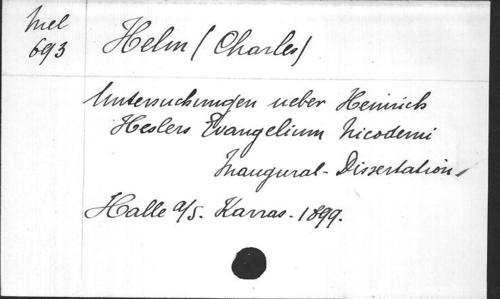 Mel
693
Helm (Charles)
Untersuchungen ueber Heinrich
Heslers Evangelium Nicodemi
Inaugural-Dissertation.
Halle a/S. Karras. 1899.